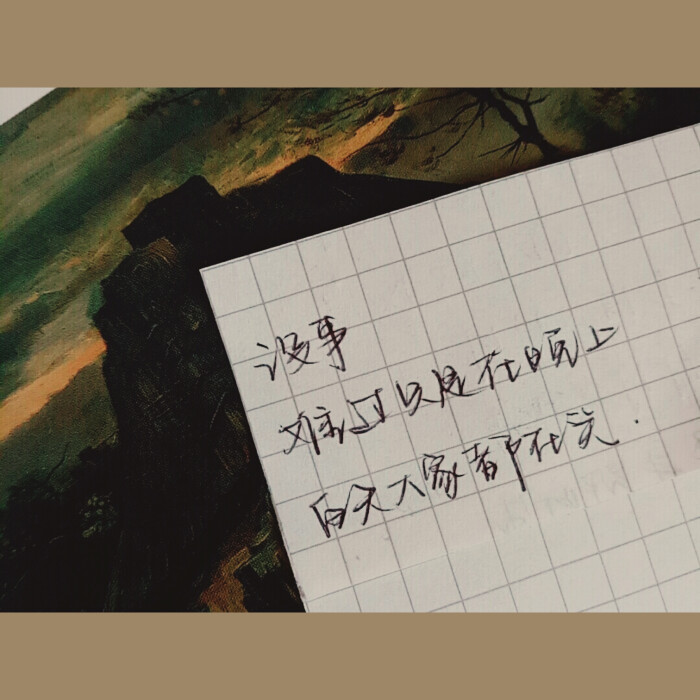 没事
难过只是在晚上
白天大家都在笑.